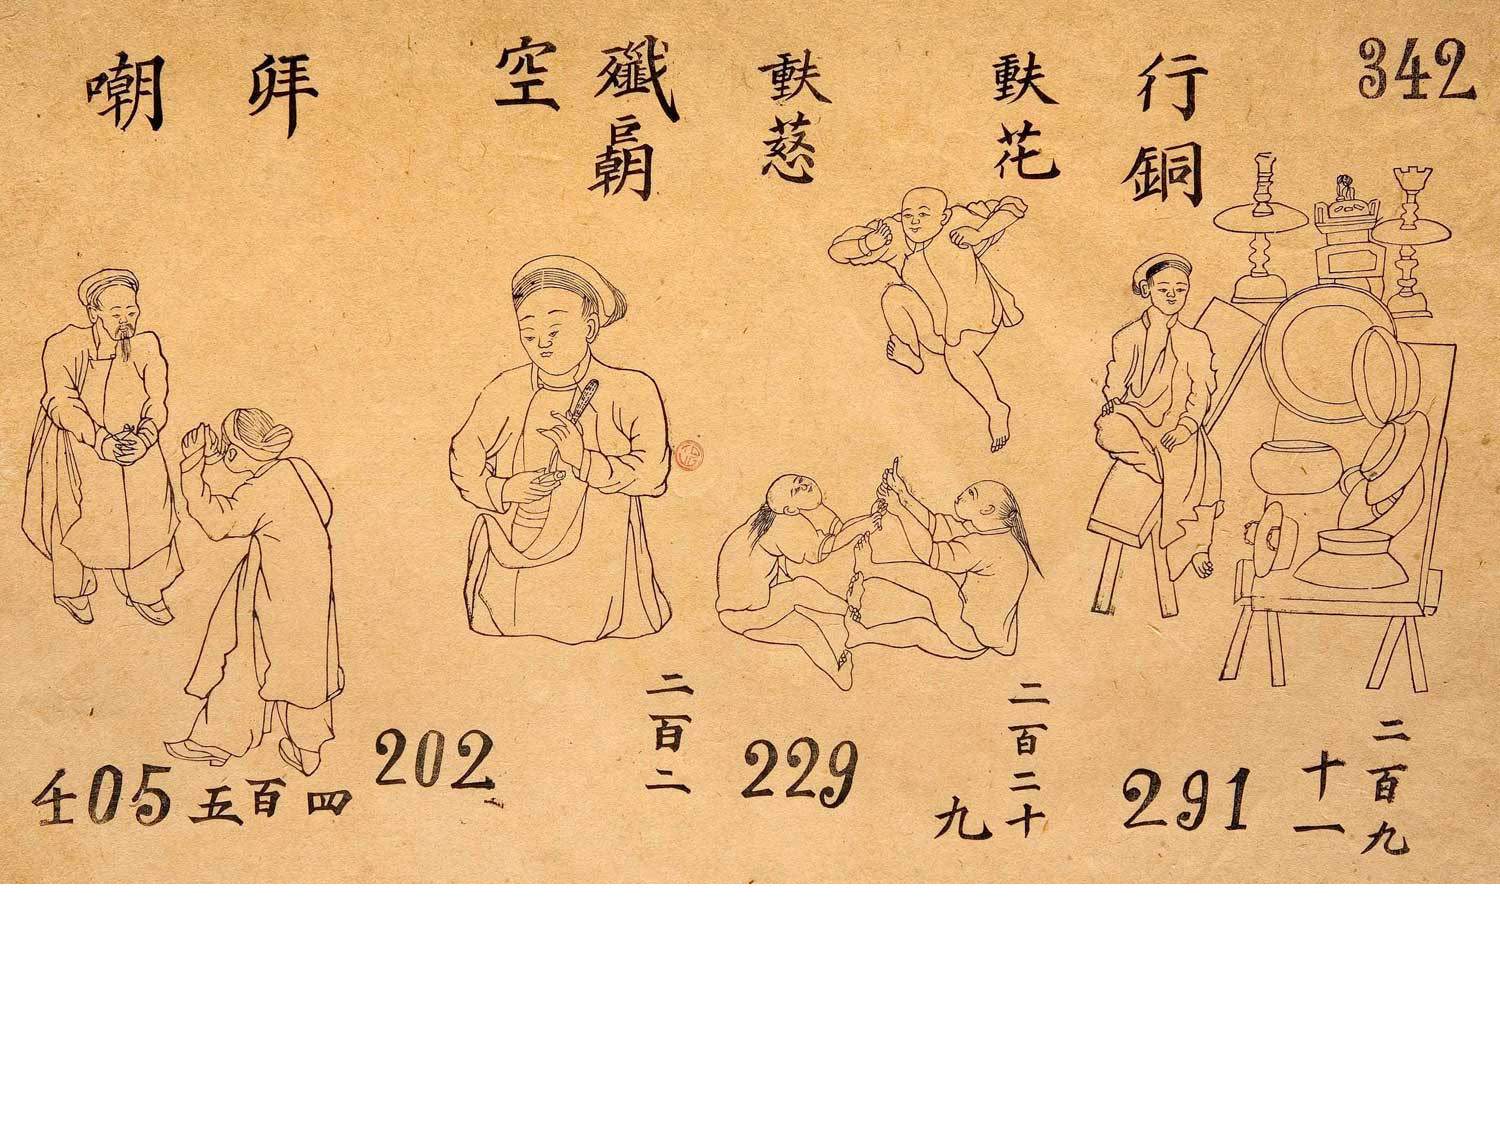 342
行銅
花
殲
空
拜
嘲
二百九
十一
291
二百二十
九
229
二百二
202
四百五
405